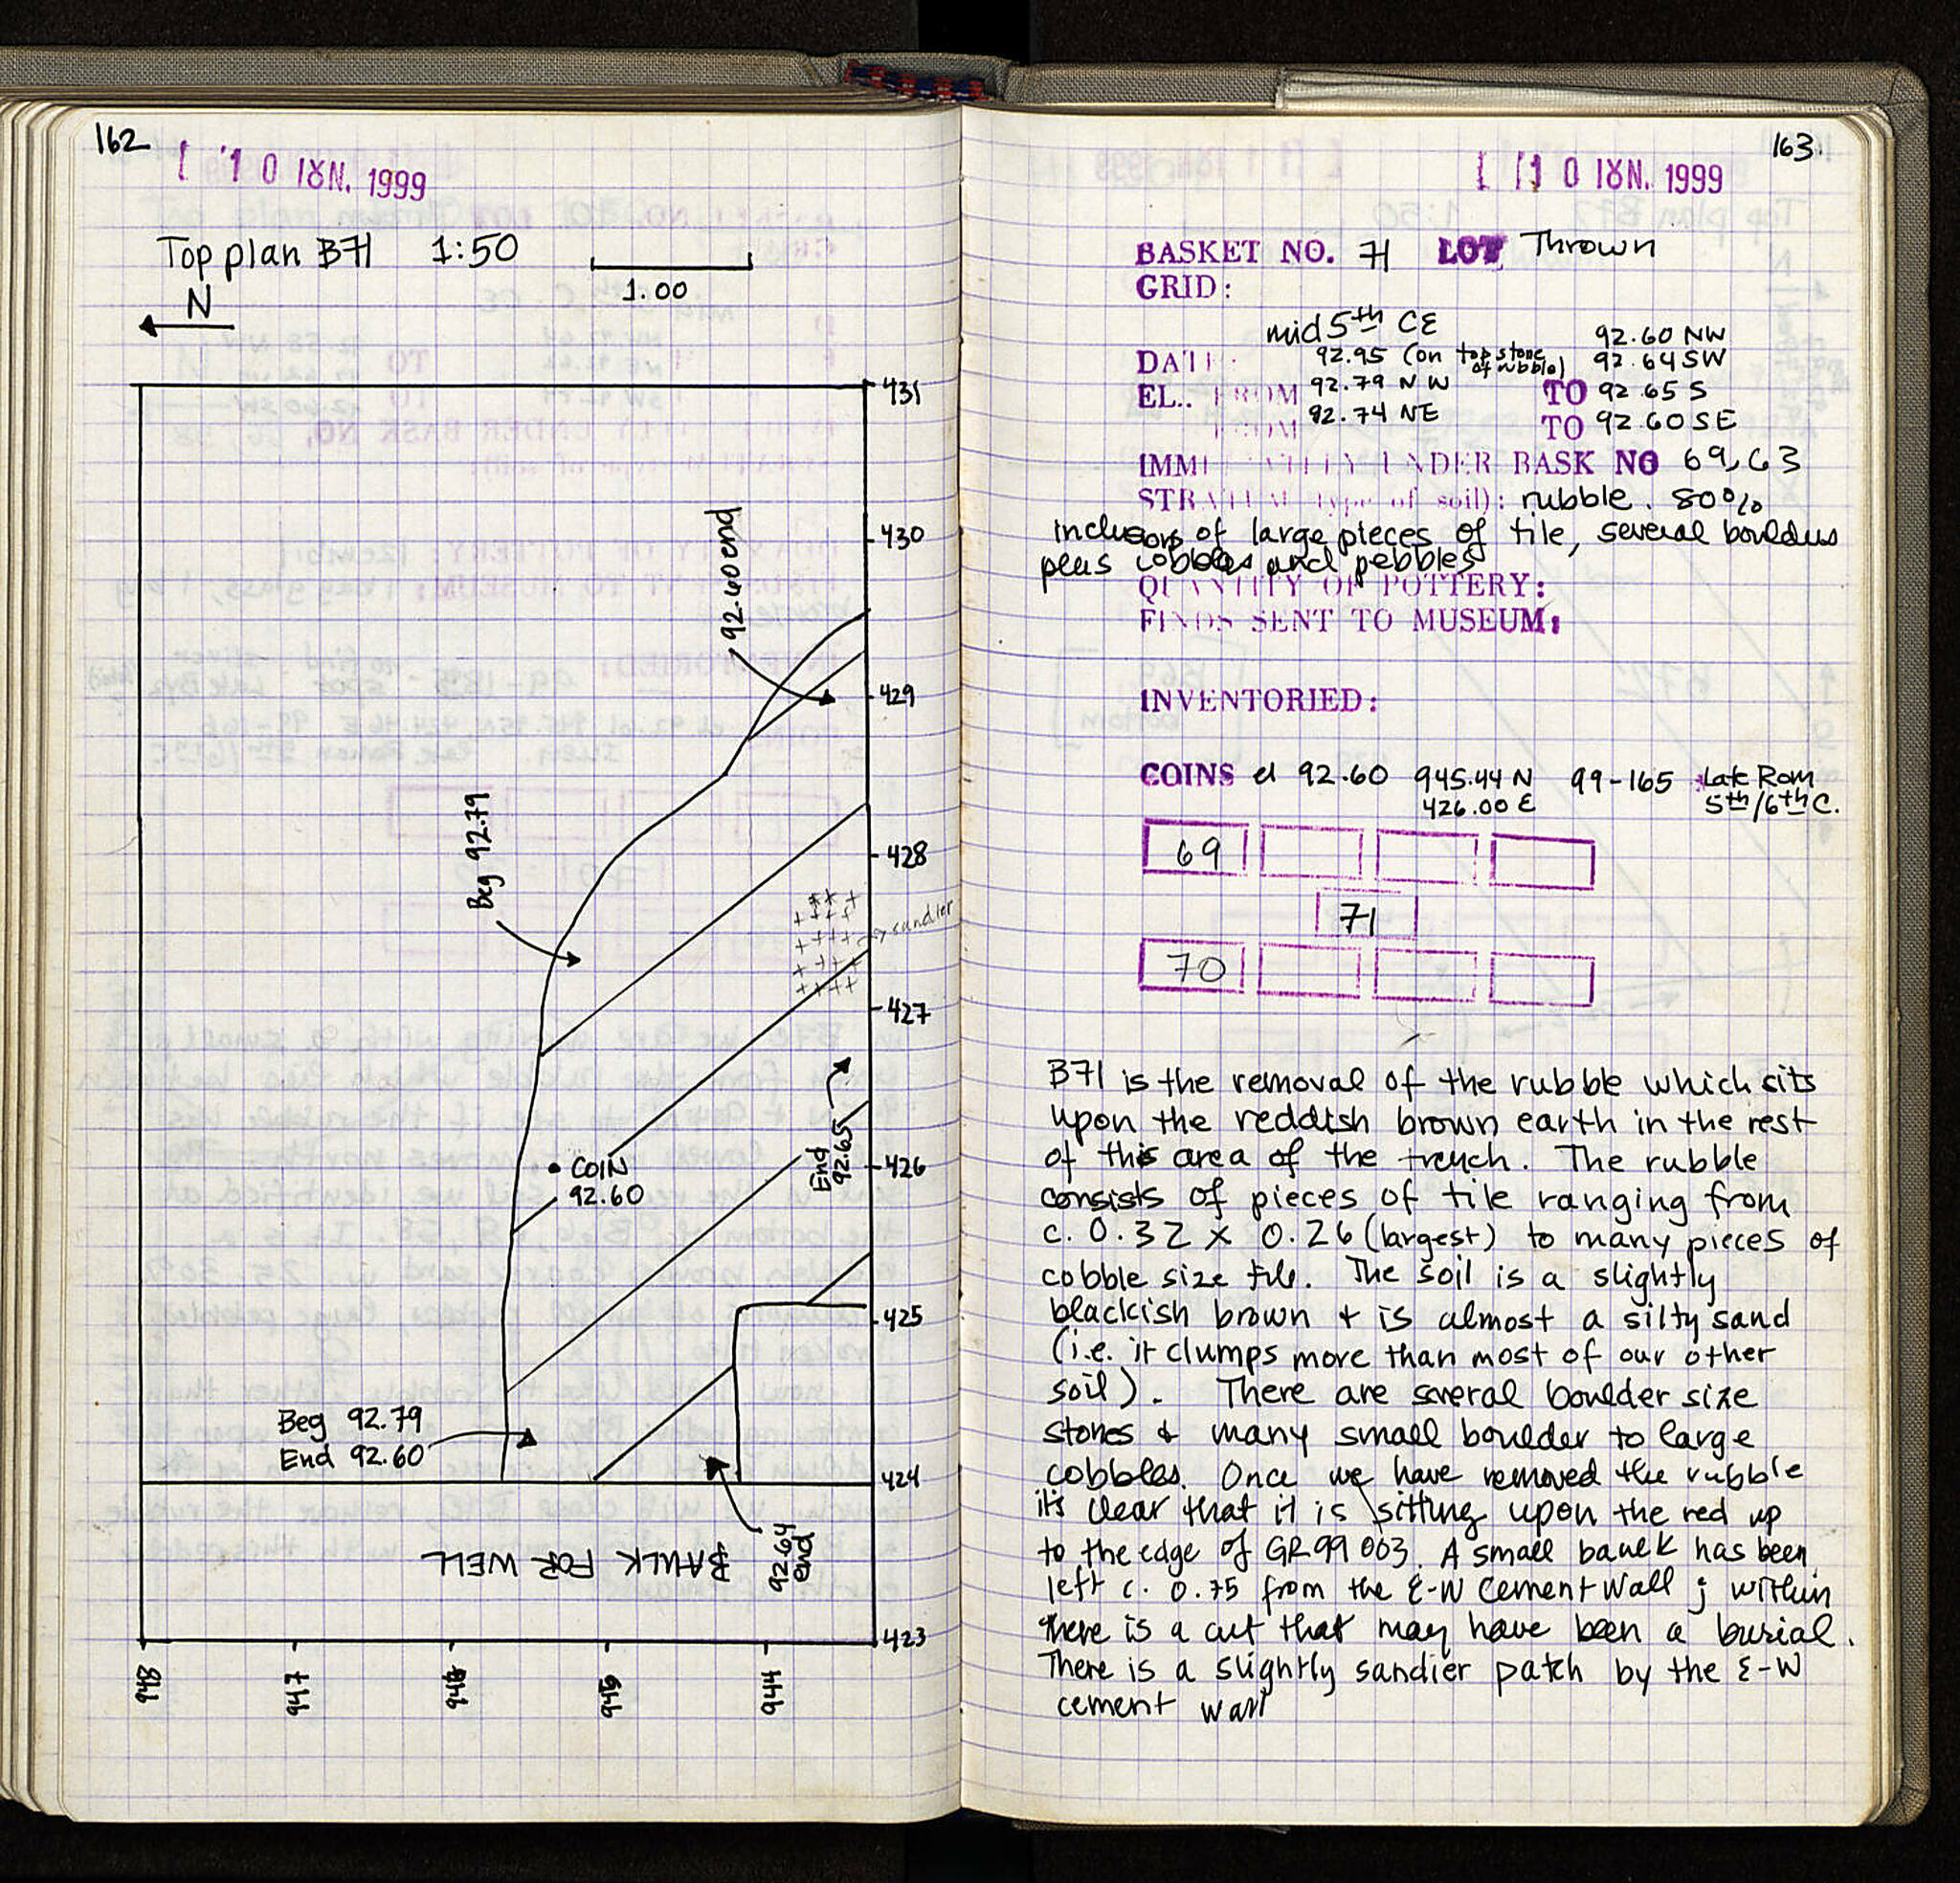 162
[ 1 0 ΙΟΥΝ. 1999
Top plan B71 1:50
1.00
N
431
430
92.60 end
429
Beg 92.79
428
sandier
427
COIN
92.60
End
92.65
426
425
Beg 92.79
End 92.60
424
BAULK FOR WELL
92.64
end
423
948
947
946
945
944
163
[ 1 0 ΙΟΥΝ. 1999
BASKET NO. 71 LOT Thrown
GRID:
mid 5th CE
92.60 NW
DATE: 92.95 (on top stone of rubble) 92.64 SW
EL.. FROM 92.79 NW TO 92.65 S
FROM 92.74 NE TO 92.60 SE
IMMEDIATELY UNDER BASK NO 69, 63
STRATUM (type of soil): rubble. 80%
inclusions of large pieces of tile, several boulders
plus cobbles and pebbles
QUANTITY OF POTTERY:
FINDS SENT TO MUSEUM:
INVENTORIED:
COINS el 92.60 945.44 N 99-165 Late Rom
426.00 E 5th/6th C.
69
71
70
B71 is the removal of the rubble which sits
upon the reddish brown earth in the rest
of this area of the trench. The rubble
consists of pieces of tile ranging from
c. 0.32 x 0.26 (largest) to many pieces of
cobble size tile. The soil is a slightly
blackish brown + is almost a silty sand
(i.e. it clumps more than most of our other
soil). There are several boulder size
stones & many small boulder to large
cobbles. Once we have removed the rubble
it's clear that it is sitting upon the red up
to the edge of GR99 003. A small baulk has been
left c. 0.75 from the E-W cement wall; within
there is a cut that may have been a burial.
There is a slightly sandier patch by the E-W
cement wall